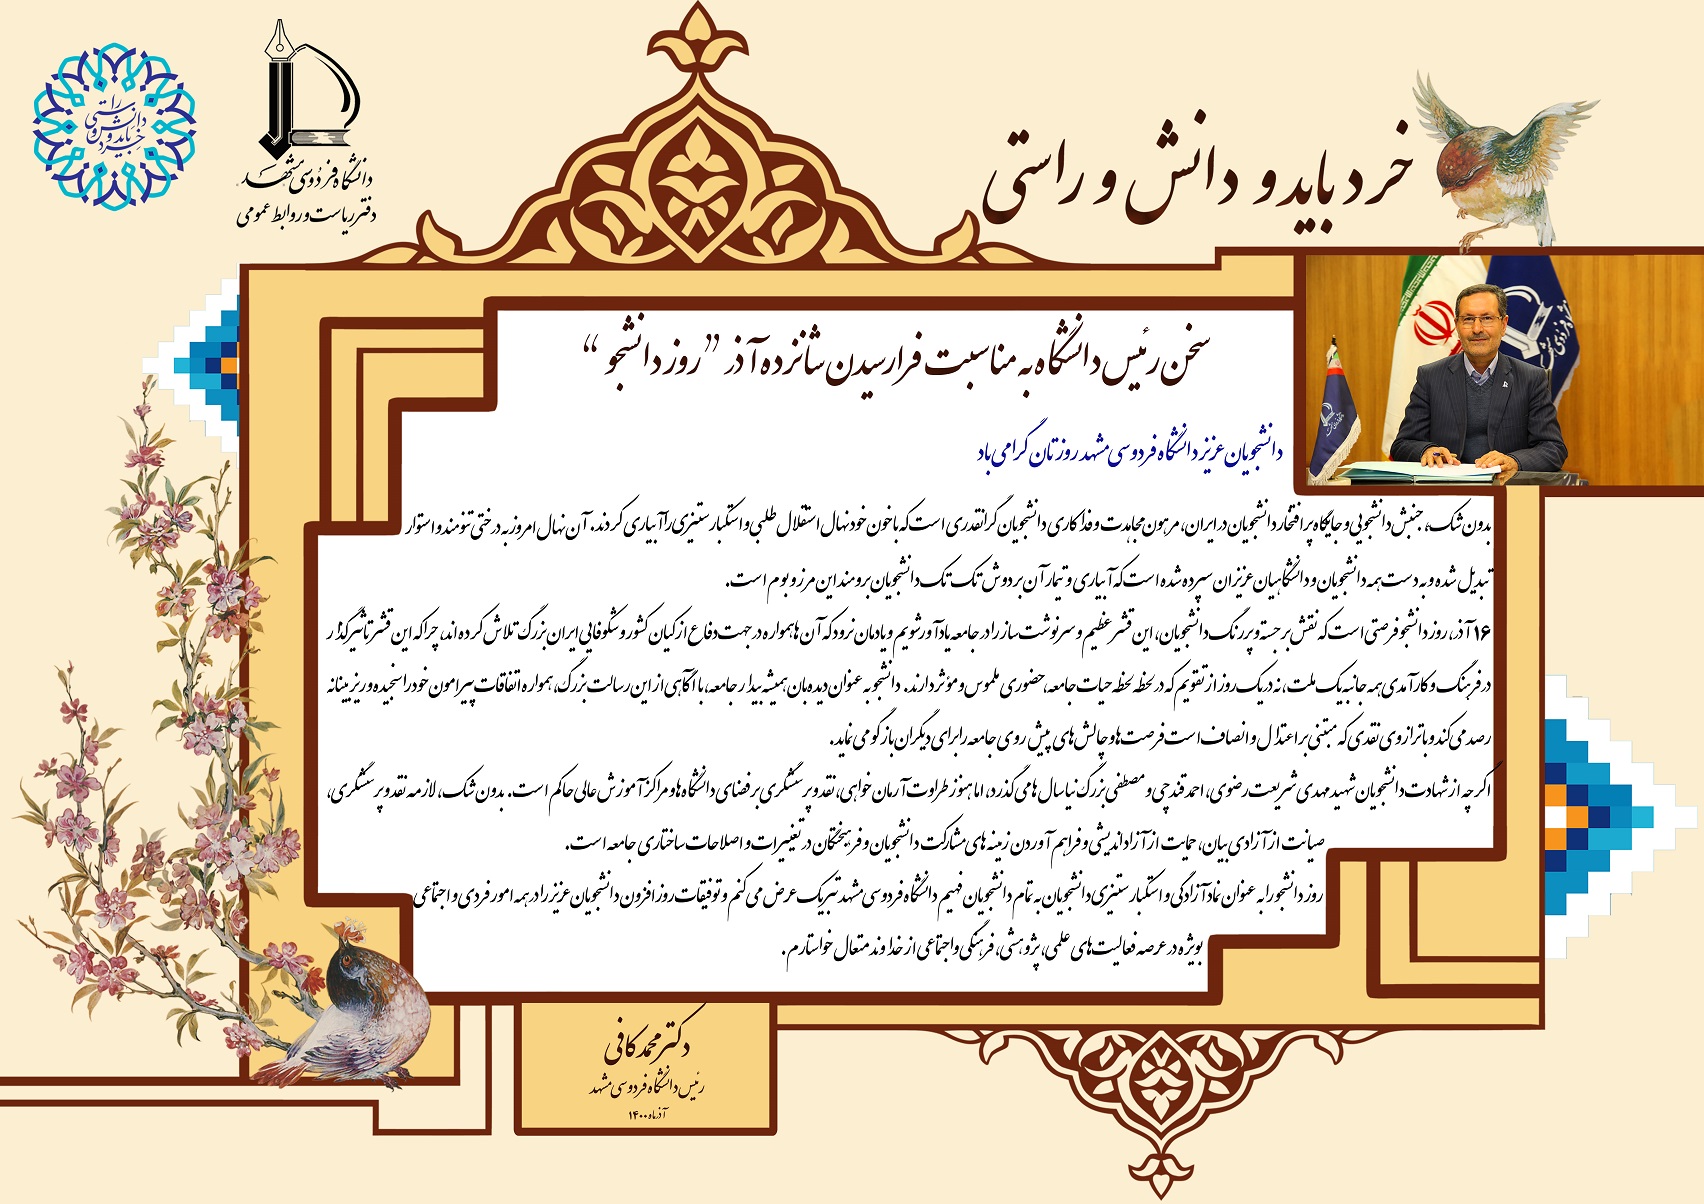 خرد باید و دانش و راستی
خرد باید و دانش و راستی
دانشگاه فردوسی مشهد
دفتر ریاست و روابط عمومی
سخن رئیس دانشگاه به مناسبت فرارسیدن شانزده آذر ”روز دانشجو“
دانشجویان عزیز دانشگاه فردوسی مشهد روزتان گرامی باد
بدون شک، جنبش دانشجویی و جایگاه پر افتخار دانشجویان در ایران، مرهون مجاهدت و فداکاری دانشجویان گرانقدری است که با خون خود نهال استقلال طلبی و استکبار ستیزی را آبیاری کردند. آن نهال امروز به درختی تنومند و استوار
تبدیل شده و به دست همه دانشجویان و دانشگاهیان عزیزان سپرده شده است که آبیاری و تیمار آن بر دوش تک تک دانشجویان برومند این مرز و بوم است.
۱۶ آذر، روز دانشجو فرصتی است که نقش برجسته و پررنگ دانشجویان، این قشر عظیم و سرنوشت ساز را در جامعه یادآور شویم و یادمان نرود که آن ها همواره در جهت دفاع از کیان کشور و شکوفایی ایران بزرگ تلاش کرده اند، چرا که این قشر تاثیرگذار
در فرهنگ و کارآمدی همه جانبه یک ملت، نه در یک روز از تقویم که در لحظه لحظه حیات جامعه، حضوری ملموس و مؤثر دارند. دانشجو به عنوان دیده بان همیشه بیدار جامعه، با آگاهی از این رسالت بزرگ، همواره اتفاقات پیرامون خود را سنجیده و ریزبینانه
رصد می کند و با ترازوی نقدی که مبتنی بر اعتدال و انصاف است فرصت ها و چالش های پیش روی جامعه را برای دیگران بازگو می نماید.
اگر چه از شهادت دانشجویان شهید مهدی شریعت رضوی، احمد قندچی و مصطفی بزرگ نیا سال ها می گذرد، اما هنوز طراوت آرمان خواهی، نقد و پرسشگری بر فضای دانشگاه ها و مراکز آموزش عالی حاکم است. بدون شک، لازمه نقد و پرسشگری،
صیانت از آزادی بیان، حمایت از آزاداندیشی و فراهم آوردن زمینه های مشارکت دانشجویان و فرهیختگان در تغییرات و اصلاحات ساختاری جامعه است.
روز دانشجو را به عنوان نماد آزادگی و استکبار ستیزی دانشجویان به تمام دانشجویان فهیم دانشگاه فردوسی مشهد تبریک عرض می کنم و توفیقات روز افزون دانشجویان عزیز را در همه امور فردی و اجتماعی
بویژه در عرصه فعالیت های علمی، پژوهشی، فرهنگی و اجتماعی از خداوند متعال خواستارم.
دکتر محمد کافی
رئیس دانشگاه فردوسی مشهد
آذرماه ۱۴۰۰